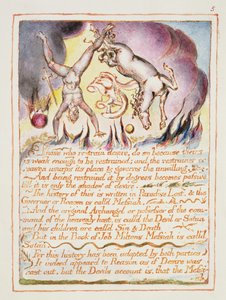 5
Those who restrain desire, do so because theirs
is weak enough to be restrained; and the restrainer or
reason usurps its place & governs the unwilling.
And being restraind it by degrees becomes passive
till it is only the shadow of desire.
The history of this is written in Paradise Lost, & the
Governor or Reason is call'd Messiah.
And the original Archangel or possessor of the com-
mand of the heavenly host, is calld the Devil or Satan
and his children are call'd Sin & Death
But in the Book of Job Miltons Messiah is call'd
Satan.
For this history has been adopted by both parties
It indeed appear'd to Reason as if Desire was
cast out, but the Devils account is, that the Messi-